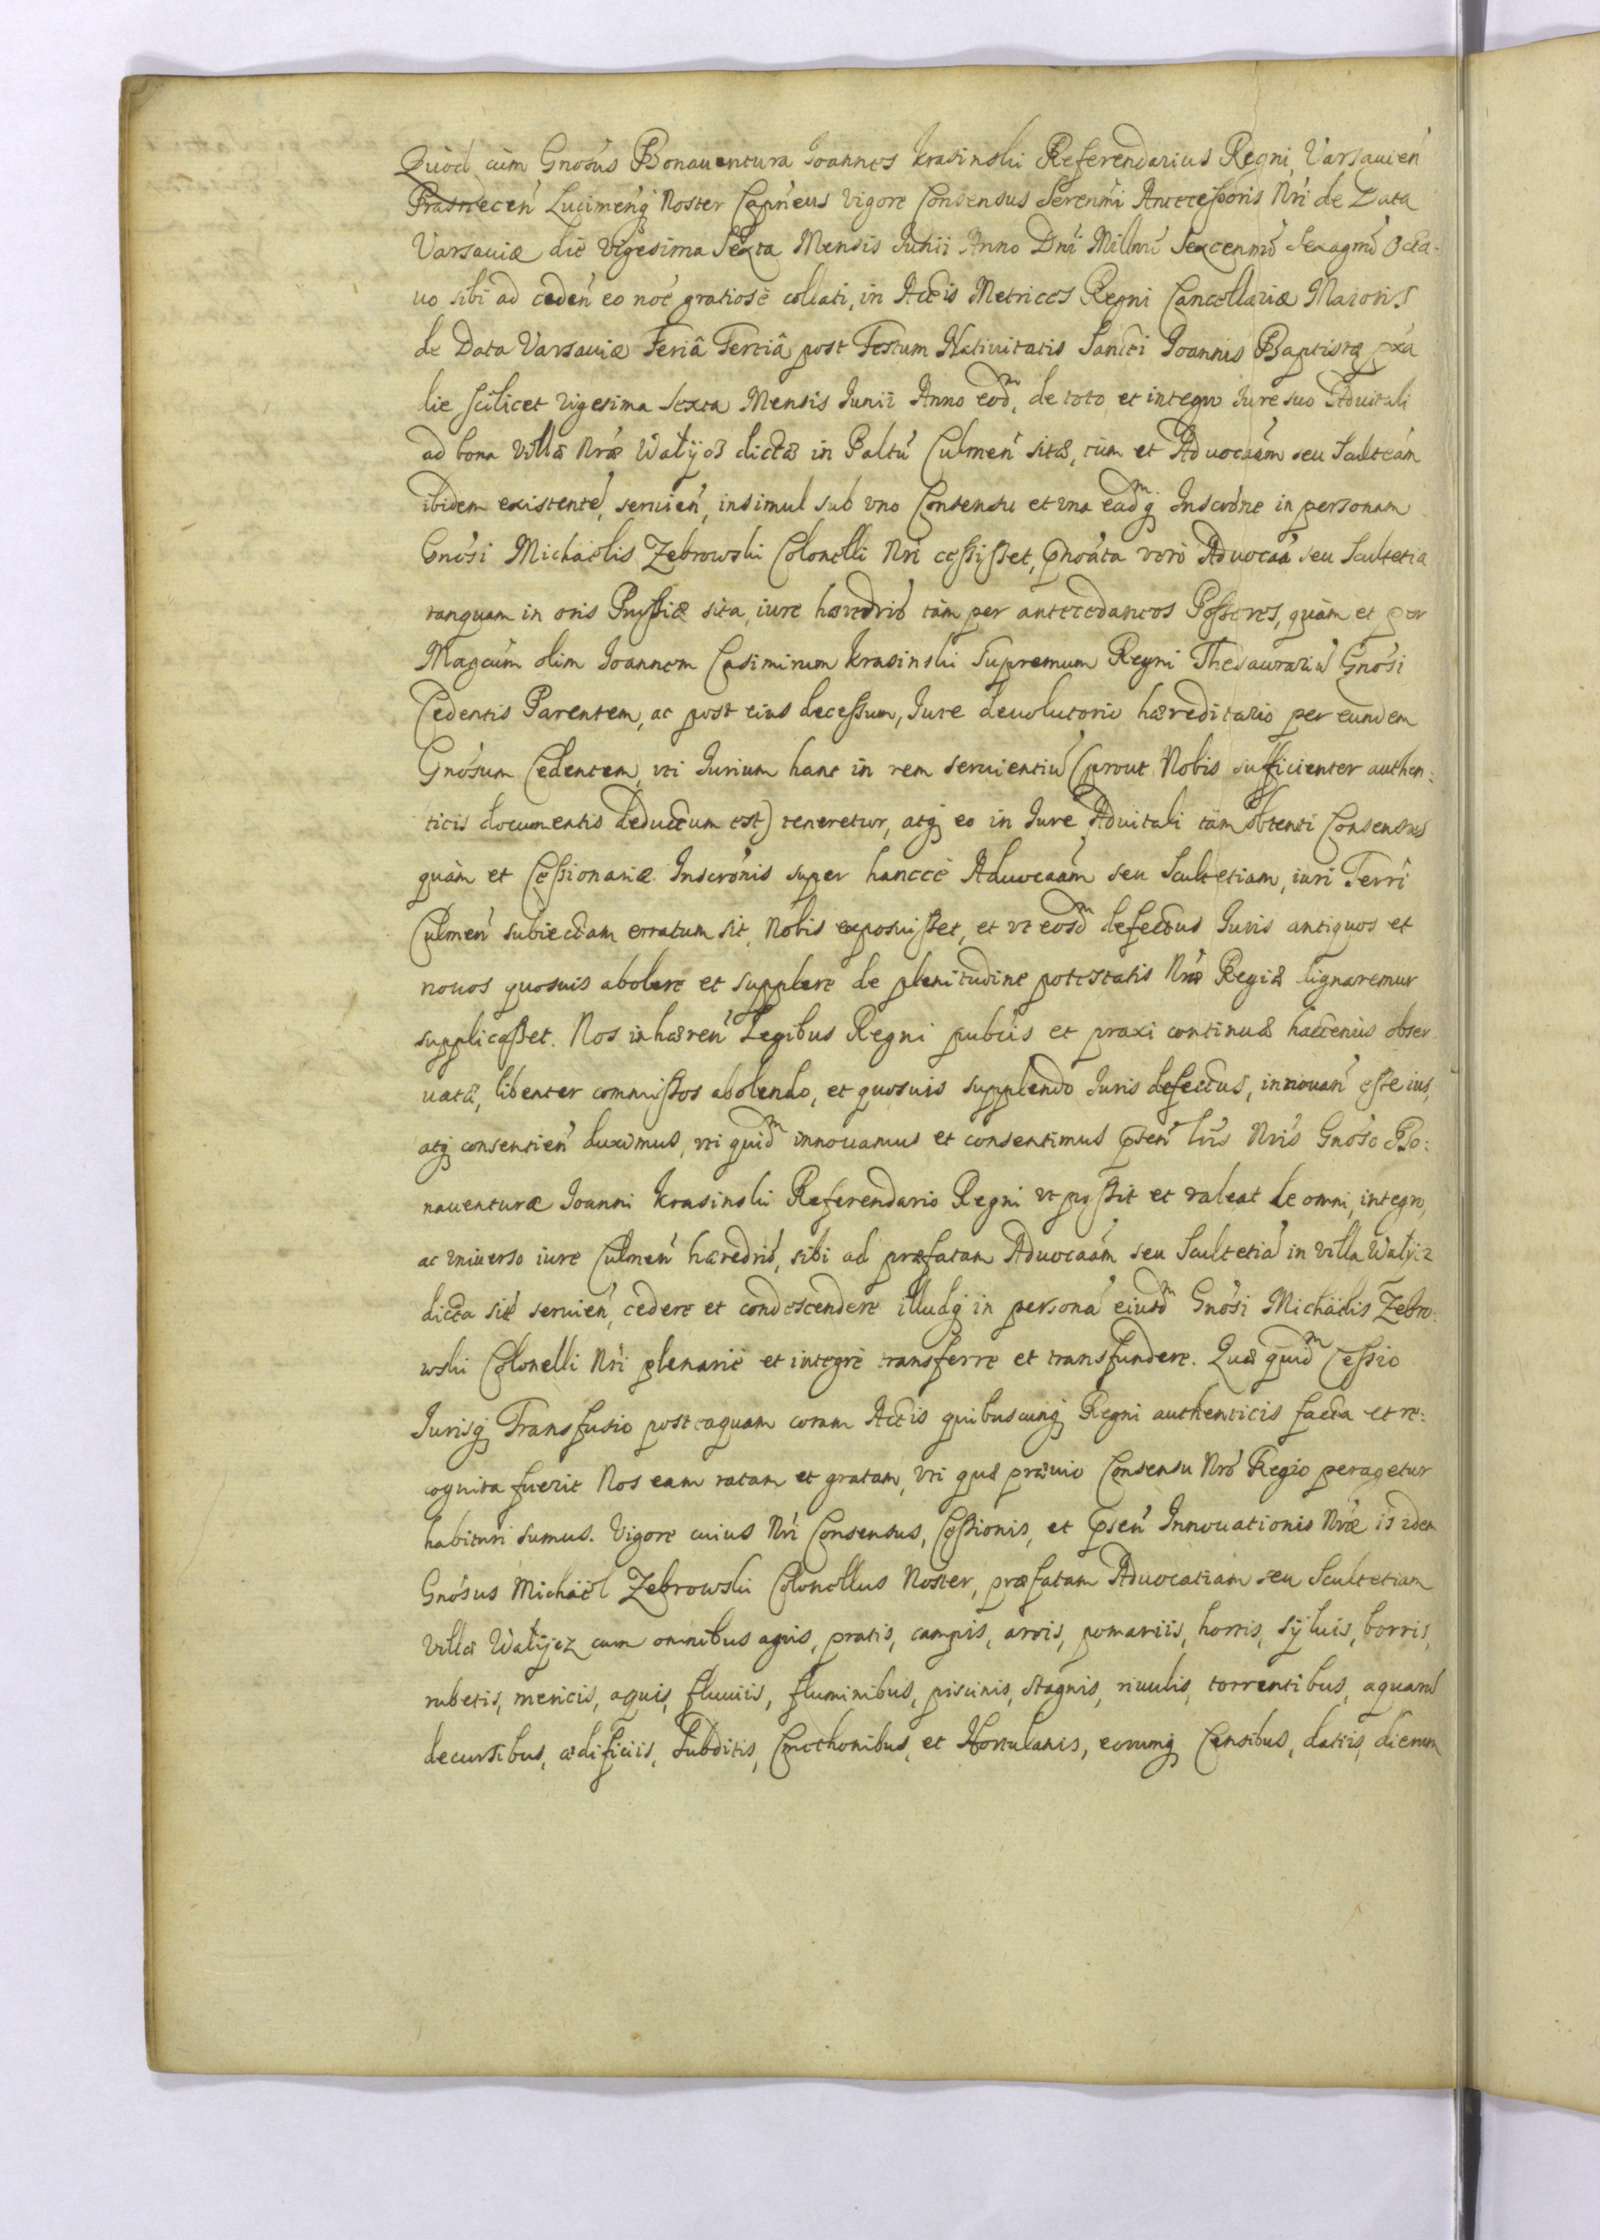 Quod cùm Gnosus Bonauentura Joannes Krasinski Referendarius Regni, Varsauien̄
Prasnecen̄ Lucimenq́ Noster Capneus vigore Consensus Serenmi Antecessoris Nri de Data
Varsauiæ die Vigesima Sexta Mensis Junii Anno Dni Millmo Sexcenmo Sexagmo Octa-
uo sibi ad ceden̄ eo noe gratiosè collati, in Actis Metrices Regni Cancellariæ Maioris
de Data Varsauiæ Feriâ Tertiâ post Festum Natiuitatis Sancti Joannis Baptistæ pxa
die scilicet vigesima sexta Mensis Junii Anno eod̃m, de toto et integro Jure suo Aduitali
ad bona Villæ Nræ Wałÿcz dictæ in Paltu Culmen̄ sitæ, tùm et Aduocaam seu Scultetiam
ibidem existente, seruien̄, insimul sub vno Consensu et vna ead̃mq́ Inscrone in personam
Gnosi Michaëlis Zebrowski Colonelli Nri cessisset, Pnoata verò Aduocaa seu Scultetia
tanquam in oris Prussiæ sita, iure hæredrio tàm per antecedaneos Possores, quàm et per
Magcum olim Joannem Casimirum Krasinski Supremum Regni Thesaurariu Gnosi
Cedentis Parentem, ac post eius decessum, Jure deuolutorio hæreditario per eundem
Gnosum Cedentem, vti Jurium hanc in rem seruientiu (prout Nobis sufficienter authen:
ticis documentis deductum est) teneretur, atq́ eo in Jure Aduitali tàm obtenti Consensus
quàm et Cessionariæ Inscronis super hancce Aduocaam seu Scultetiam, iuri Terri
Culmen̄ subiectam erratum sit, Nobis exposuisset, et vt eosd̃m defectus Juris antiquos et
nouos quosuis abolere et supplere de plenitudine potestatis Nræ Regiæ dignaremur
supplicasset. Nos inhæren̄ Legibus Regni pubcis et praxi continuæ hactenùs obser
uatæ, libenter commissos abolendo, et quosuis supplendo Juris defectus, innouan̄ esse ius,
atq́ consentien̄ duximus, vti quid̃m innouamus et consentimus Psen̄ Lris Nris Gnoso Bo:
nauenturæ Joanni Krasinski Referendario Regni vt possit et valeat de omni, integro,
ac vniuerso iure Culmen̄ hæredrio, sibi ad præfatam Aduocaam seu Scultetia in villa Wałÿcz
dicta sit seruien̄, cedere et condescendere illudq́ in persona eiusd̃m Gnosi Michaëlis Zebro:
wski Colonelli Nri plenariè et integrè transferre et transfundere. Quæ quid̃m Cessio
Jurisq́ Transfusio posteaquam coram Actis quibuscunq́ Regni authenticis facta et re:
cognita fuerit Nos eam ratam et gratam, vti quæ præuio Consensu Nro Regio peragetur
habituri sumus. Vigore cuius Nri Consensus, Cessionis, et Psen̄ Innouationis Nræ is idem
Gnosus Michaël Zebrowski Colonellus Noster, præfatam Aduocatiam seu Scultetiam
Villæ Wałÿcz cum omnibus agris, pratis, campis, aruis, pomariis, hortis, sÿluis, borris,
rubetis, mericis, aquis, fluuiis, fluminibus, piscinis, stagnis, riuulis, torrentibus, aquaru
decursibus, ædificiis, Subditis, Cmethonibus, et Hortulanis, eorumq́ Censibus, datiis, dierum